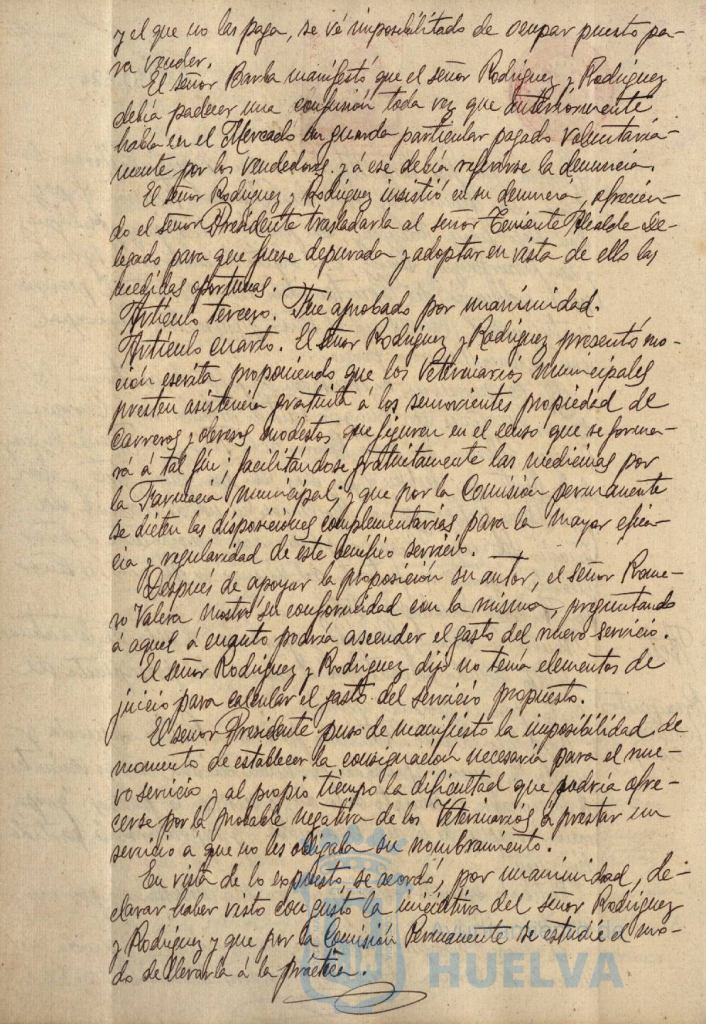 y el que no las paga, se vé imposibilitado de ocupar puesto pa-
ra vender.
El señor Barba manifestó que el señor Rodríguez y Rodríguez
debía padecer una confusión toda vez que anteriormente
había en el Mercado un guarda particular pagado voluntaria-
mente por los vendedores y á ese debía referirse la denuncia.
El señor Rodríguez y Rodríguez insistió en su denuncia, ofrecien-
do el señor Presidente trasladarla al señor Teniente Alcalde De-
legado para que fuese depurada y adoptar en vista de ello las
medidas oportunas.
Artículo tercero. Fué aprobado por unanimidad.
Artículo cuarto. El señor Rodríguez y Rodríguez presentó mo-
ción escrita proponiendo que los Veterinarios municipales
presten asistencia gratuita á los semovientes propiedad de
carreros y obreros modestos que figuren en el censo que se forma-
rá á tal fin; facilitándose gratuitamente las medicinas por
la Farmacia municipal; y que por la Comisión permanente
se dicten las disposiciones complementarias para la mayor efica-
cia y regularidad de este benéfico servicio.
Después de apoyar la proposición su autor, el señor Rome-
ro Valera mostró su conformidad con la misma, preguntando
á aquel á cuanto podría ascender el gasto del nuevo servicio.
El señor Rodríguez y Rodríguez dijo no tenía elementos de
juicio para calcular el gasto del servicio propuesto.
El señor Presidente puso de manifiesto la imposibilidad de
momento de establecer la consignación necesaria para el nue-
vo servicio y al propio tiempo la dificultad que podría ofre-
cerse por la probable negativa de los Veterinarios a prestar un
servicio a que no les obligaba su nombramiento.
En vista de lo expuesto, se acordó, por unanimidad, de-
clarar haber visto con gusto la iniciativa del señor Rodríguez
y Rodríguez y que por la Comisión Permanente se estudie el mo-
do de llevarla á la práctica.
HUELVA